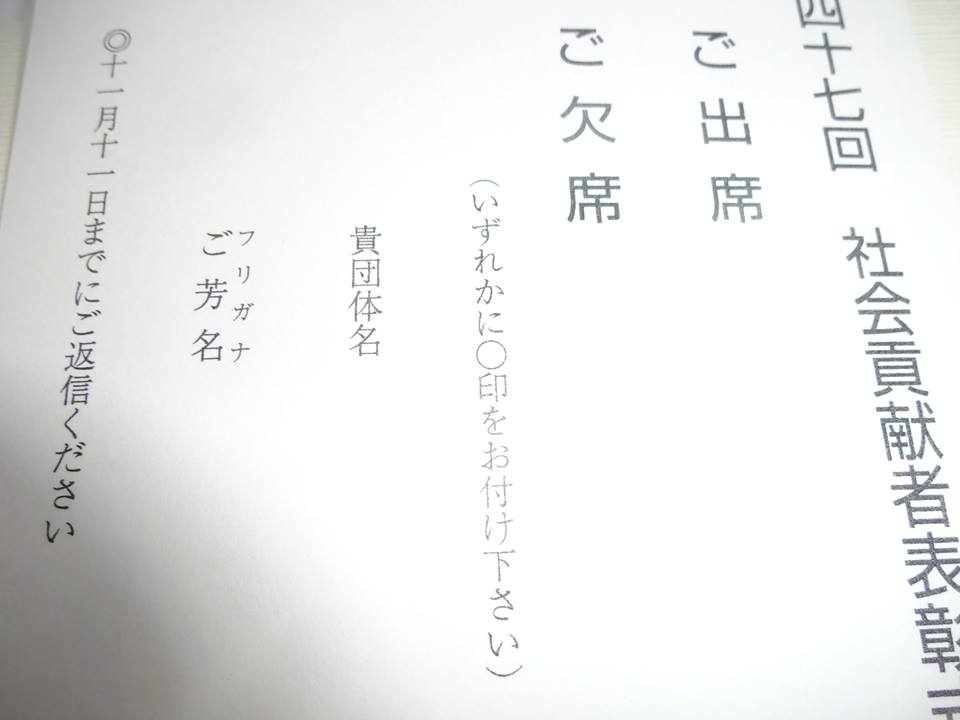 四十七回 社会貢献者表彰式
ご出席
ご欠席
(いずれかに○印をお付け下さい)
貴団体名
フリガナ
ご芳名
◎十一月十一日までにご返信ください